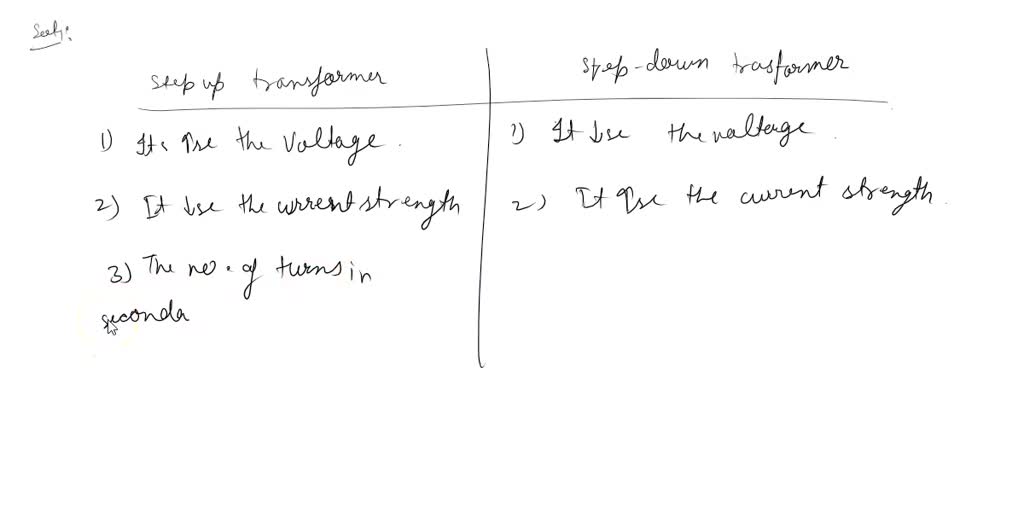 step up transformer
step-down trasformer
1) It ↑se the Voltage.
1) It ↓se the voltage.
2) It ↓se the current strength
2) It ↑se the current strength.
3) The no. of turns in
seconda